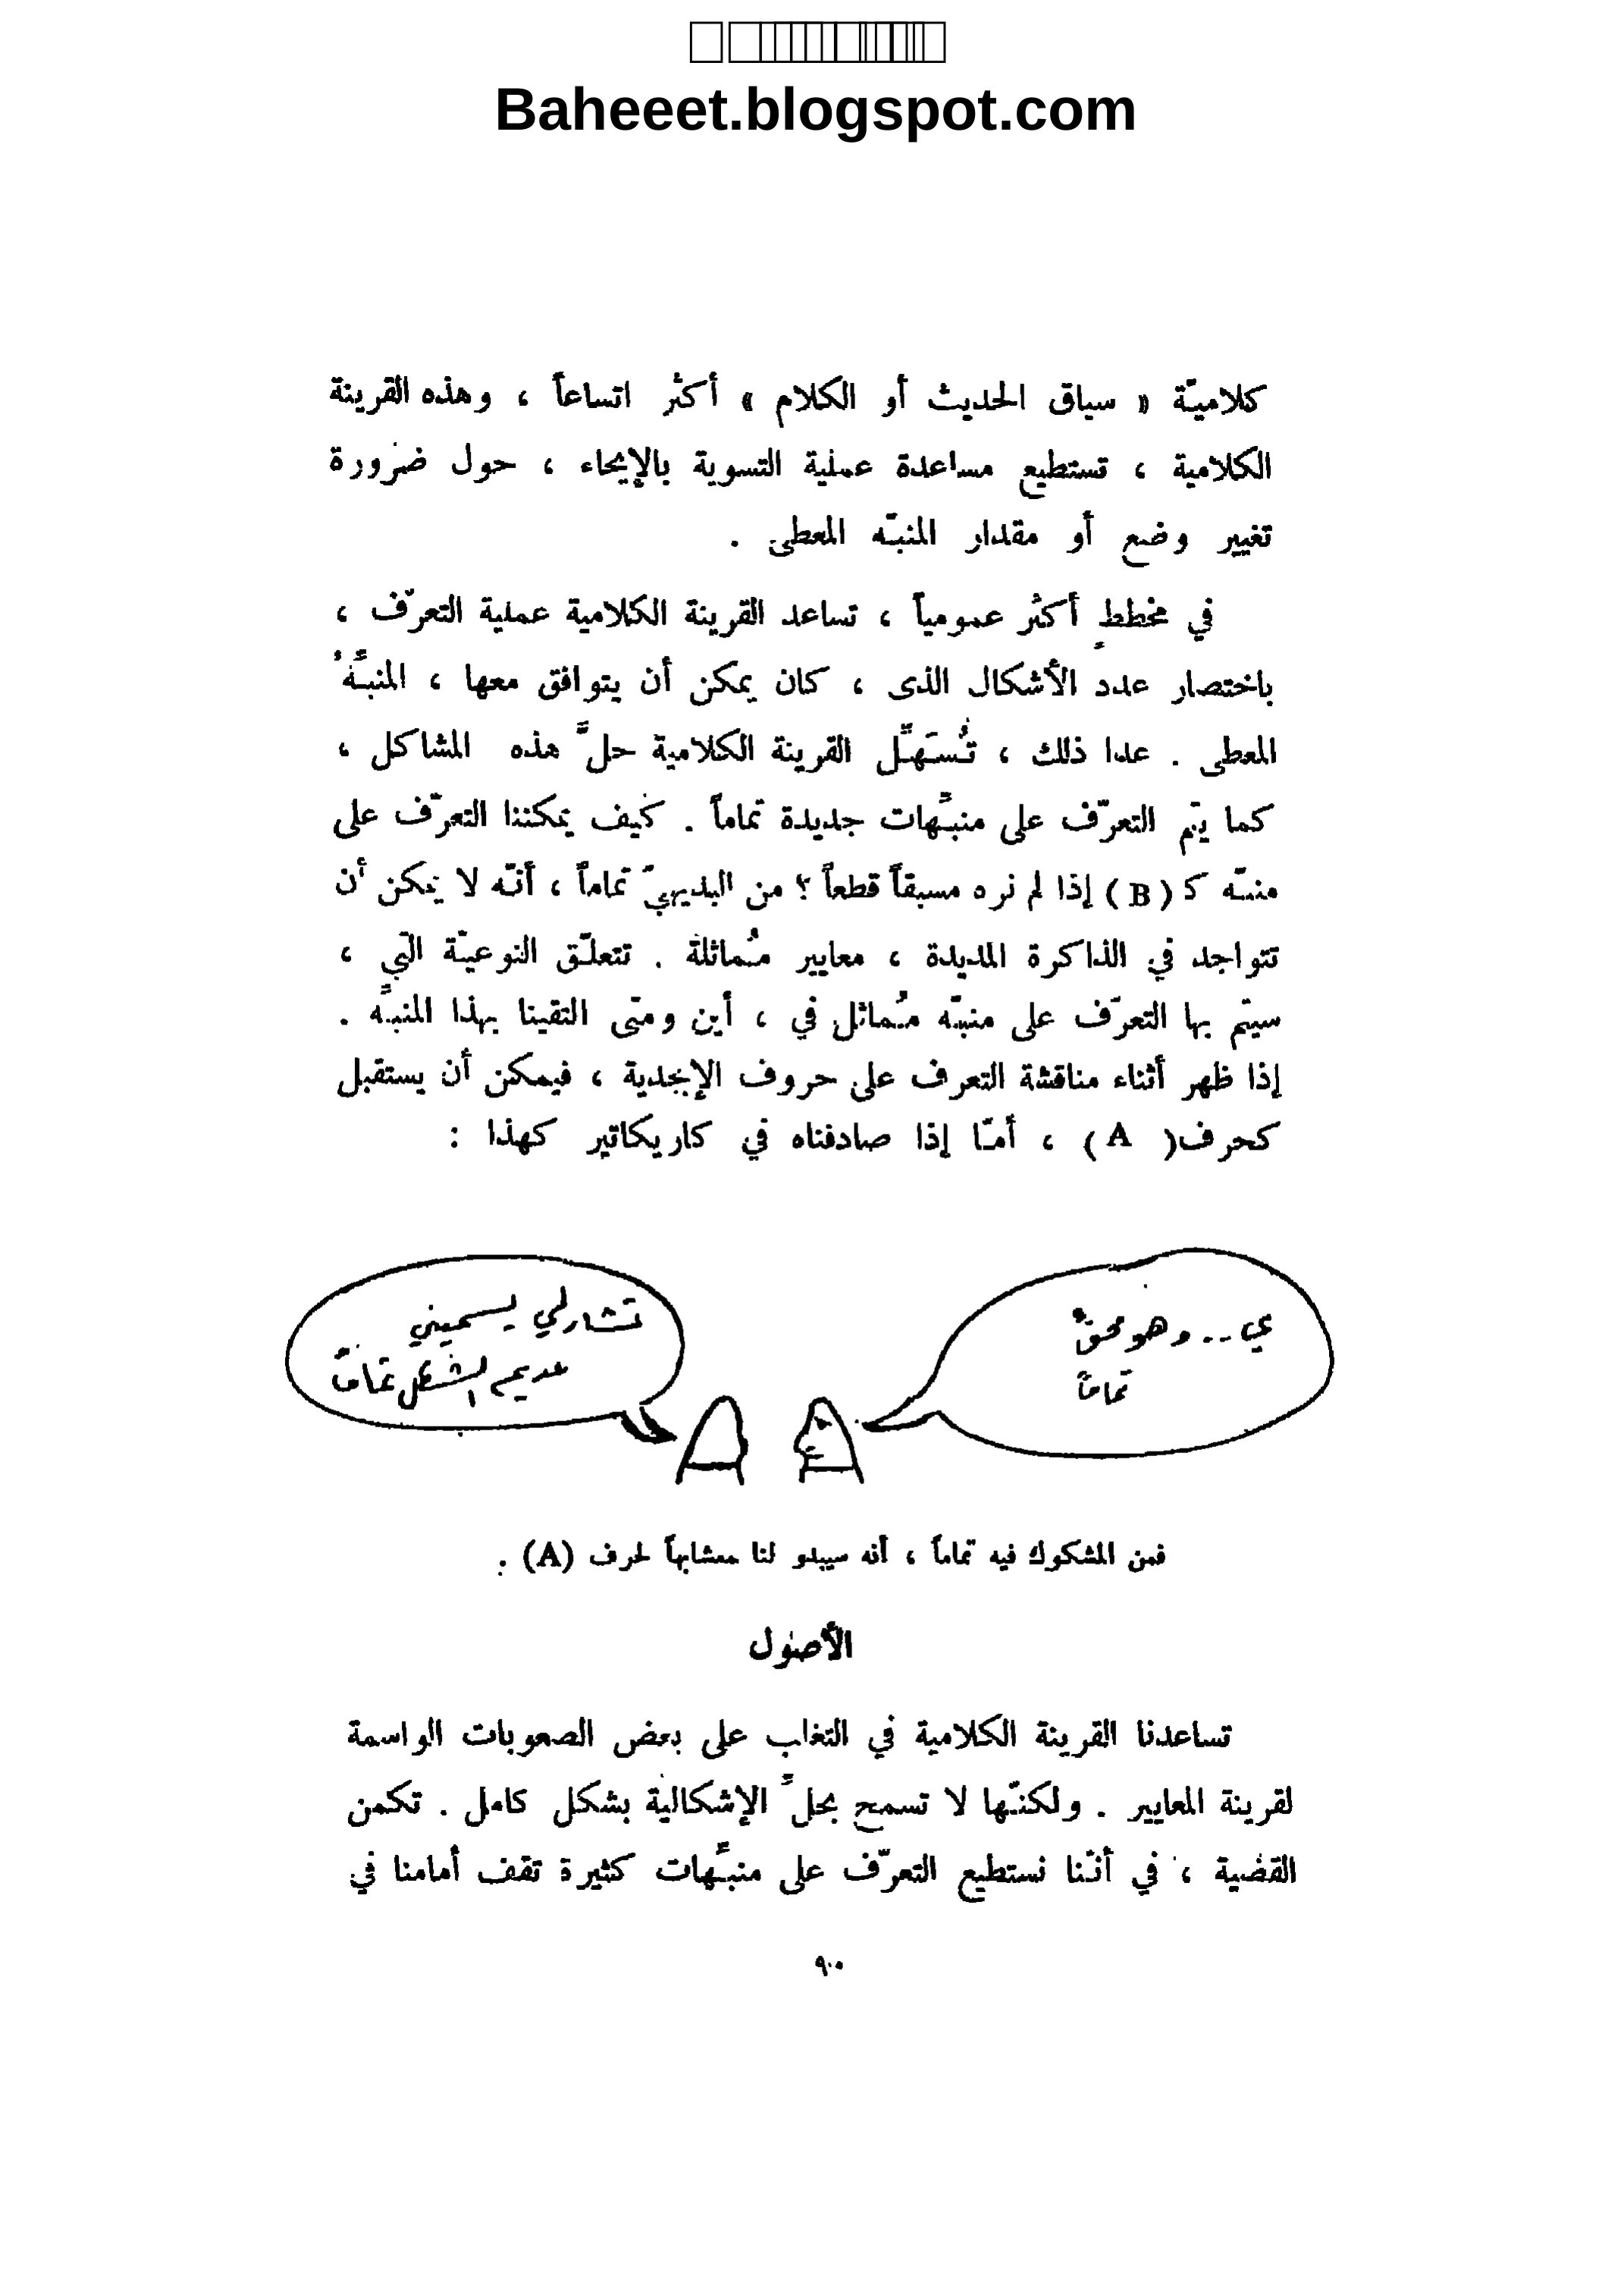 Baheeet.blogspot.com
كلاميّة « سياق الحديث أو الكلام » أكثر اتساعاً ، وهذه القرينة
الكلامية ، تستطيع مساعدة عملية التسوية بالإيحاء ، حول ضرورة
تغيير وضع أو مقدار المنبّه المعطى .
في مخططٍ أكثر عمومياً ، تساعد القرينة الكلامية عملية التعرّف ،
باختصار عدد الأشكال الذى ، كان يمكن أن يتوافق معها ، المنبِّهُ
المعطى . عدا ذلك ، تُسَهِّل القرينة الكلامية حلَّ هذه المشاكل ،
كما يتم التعرّف على منبِّهات جديدة تماماً . كيف يمكننا التعرّف على
منبّه كـ ( B ) إذا لم نره مسبقاً قطعاً ؟ من البديهيّ تماماً ، أنّه لا يمكن أن
تتواجد في الذاكرة المديدة ، معايير مُماثلة . تتعلّق النوعيّة التي ،
سيتم بها التعرّف على منبّه مُماثل في ، أين ومتى التقينا بهذا المنبِّه .
إذا ظهر أثناء مناقشة التعرف على حروف الإبجدية ، فيمكن أن يستقبل
كحرف( A ) ، أمّا إذا صادفناه في كاريكاتير كهذا :
تشارلي يسميني
عديم الشكل تماماً
ي .. وهو محقٌ
تماماً
فمن المشكوك فيه تماماً ، أنه سيبدو لنا معشابهاً لحرف (A) .
الأصول
تساعدنا القرينة الكلامية في التغاب على بعض الصعوبات الواسمة
لقرينة المعايير . ولكنّها لا تسمح بحلِّ الإشكالية بشكل كامل . تكمن
القضية ، في أنّنا نستطيع التعرّف على منبِّهات كثيرة تقف أمامنا في
٩٠